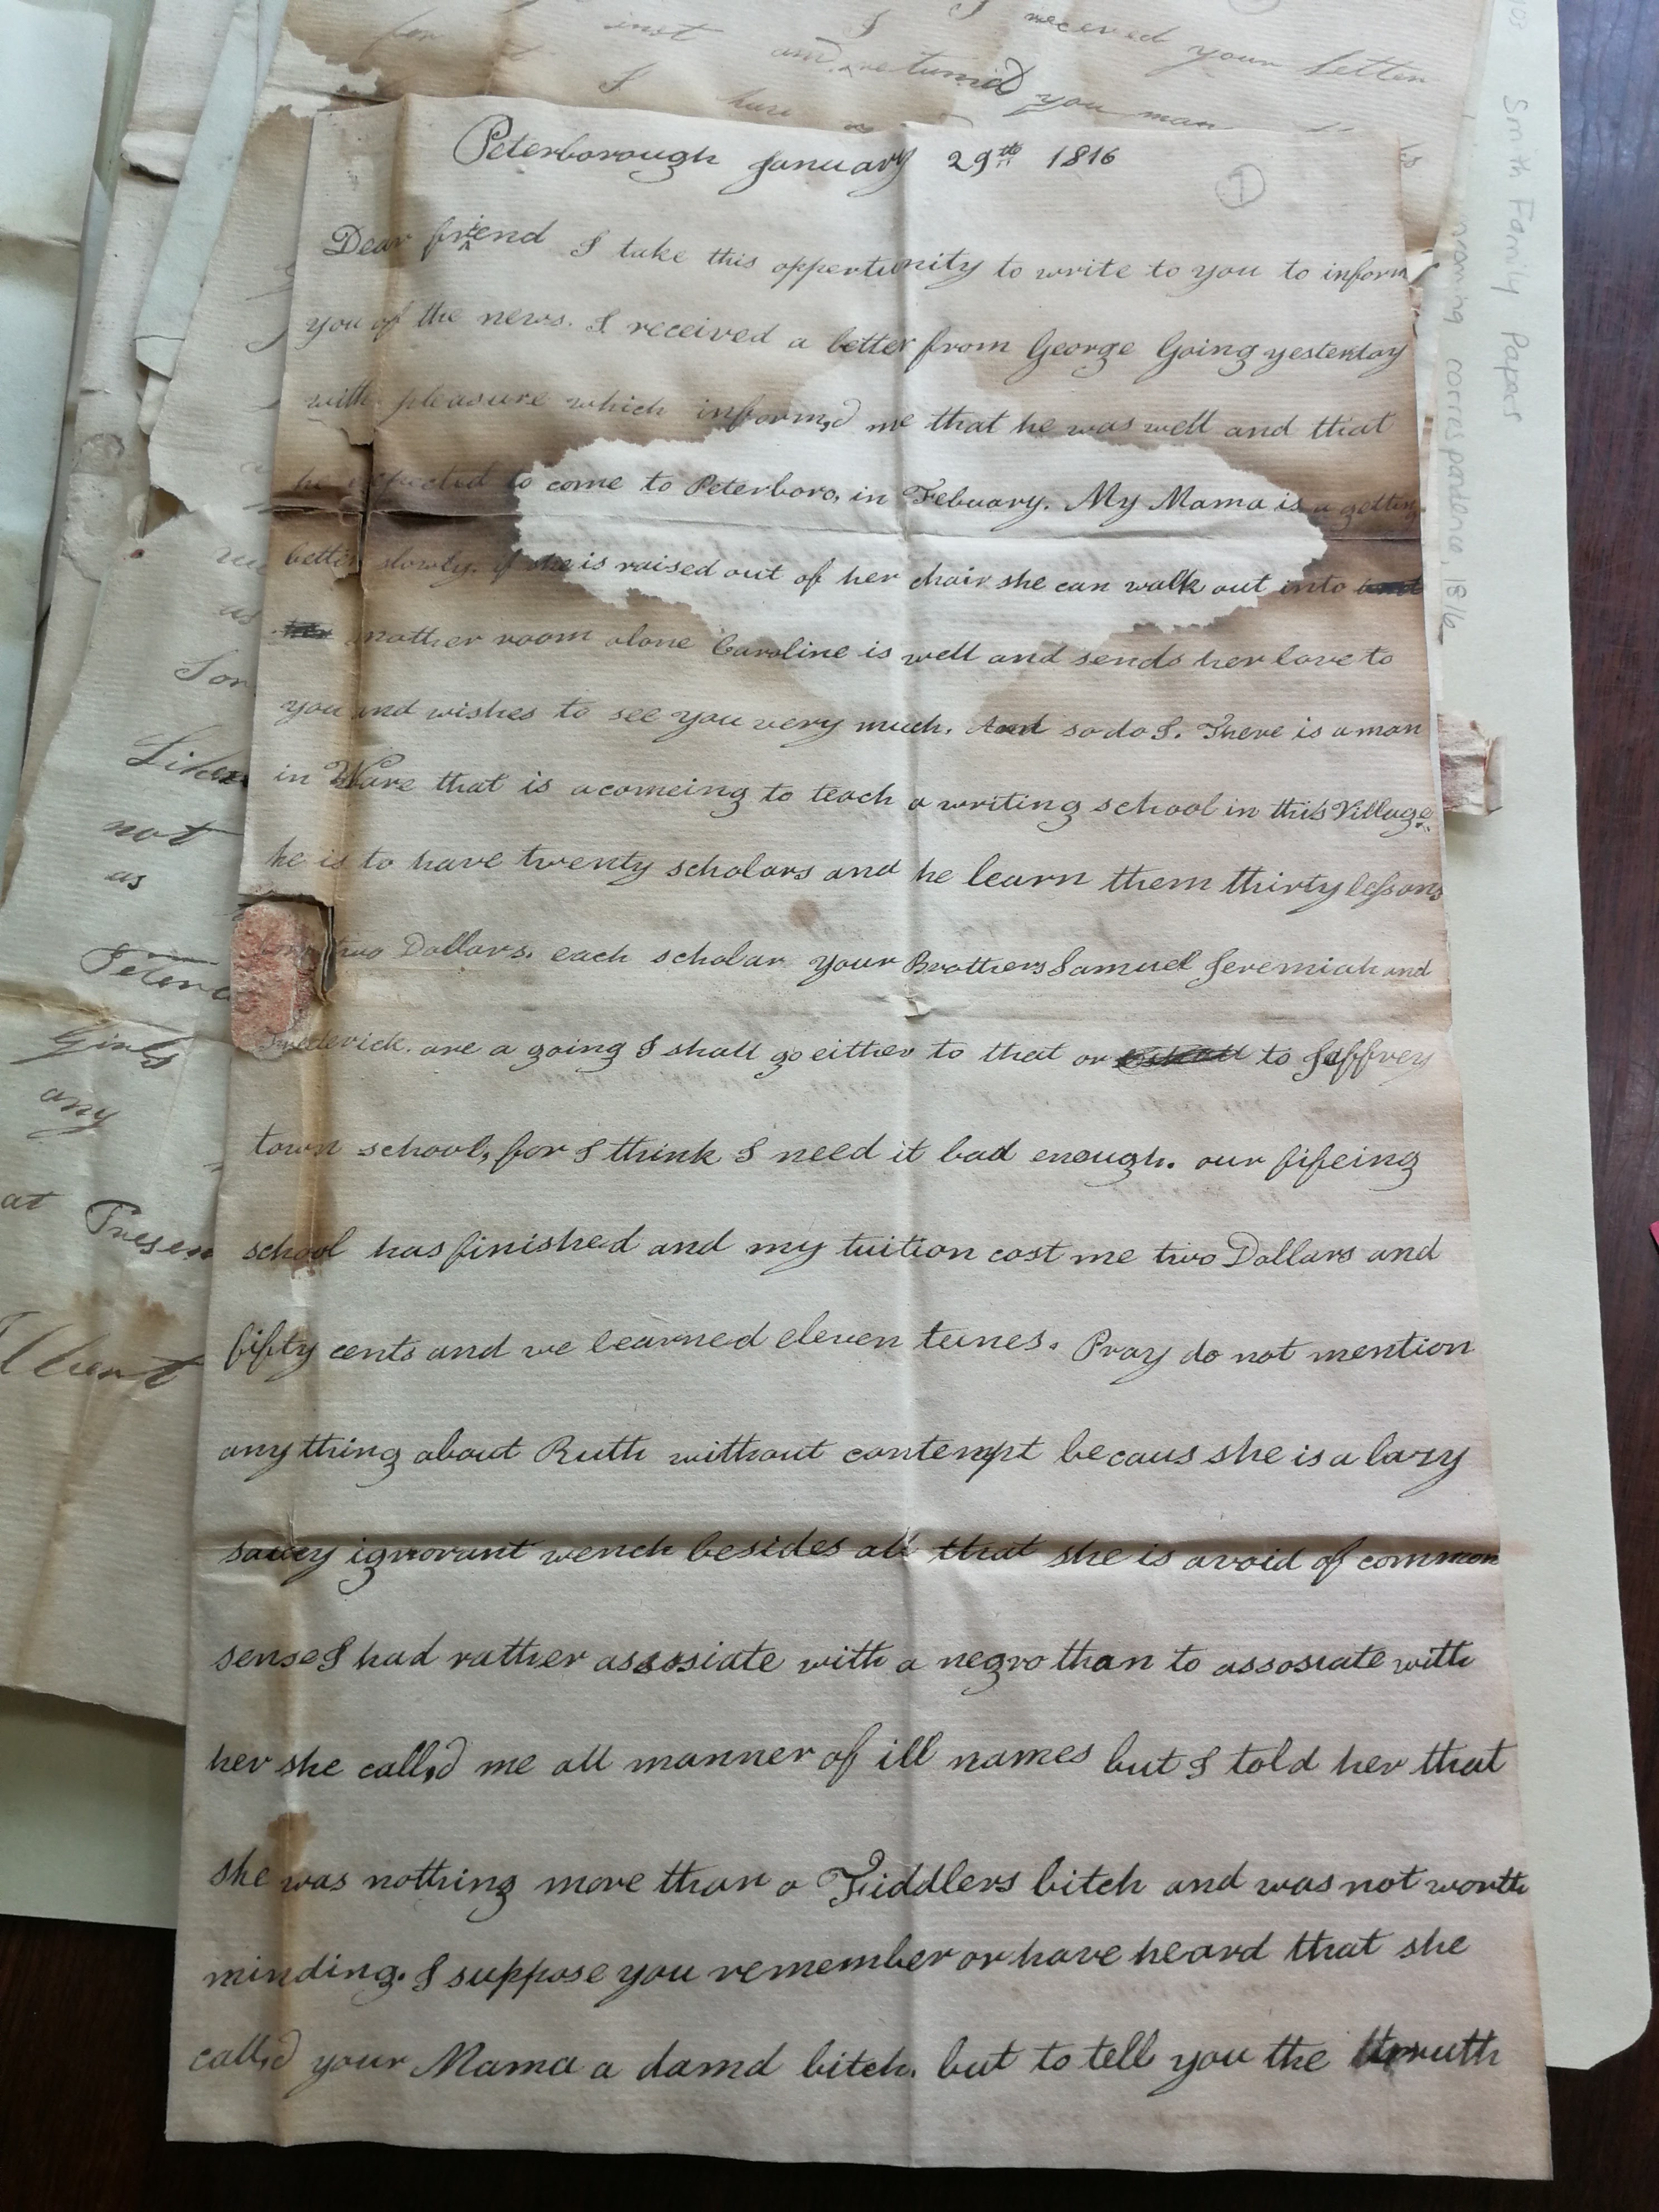 I received your letter
for inst and returnid you man
I have
Smith Family Papers
correspondence, 1816
Peterborough January 29th 1816
1
Dear friend I take this oppertunity to write to you to inform
you of the news. I received a letter from George Going yesterday
with pleasure which inform,d me that he was well and that
he expected to come to Peterboro, in Febuary. My Mama is a getting
better slowly. if she is raised out of her chair she can walk out into
another room alone Caroline is well and sends her love to
you and wishes to see you very much. And so do I. There is a man
in Ware that is acomeing to teach a writing school in this Village
he is to have twenty scholars and he learn them thirty lessons
two Dollars. each scholar your Brothers Samuel Jeremiah and
Frederick. are a going I shall go either to that or to Jaffrey
town school, for I think I need it bad enough. our fifeing
school has finished and my tuition cost me two Dollars and
fifty cents and we learned eleven tunes. Pray do not mention
any thing about Ruth without contempt becaus she is a lazy
saucy ignorant wench besides all that she is avoid of common
sense I had rather assosiate with a negro than to assosiate with
her she call,d me all manner of ill names but I told her that
she was nothing more than a Fiddlers bitch and was not worth
minding. I suppose you remember or have heard that she
call,d your Mama a damd bitch. but to tell you the truth
not
as
Girls
any
at Presen